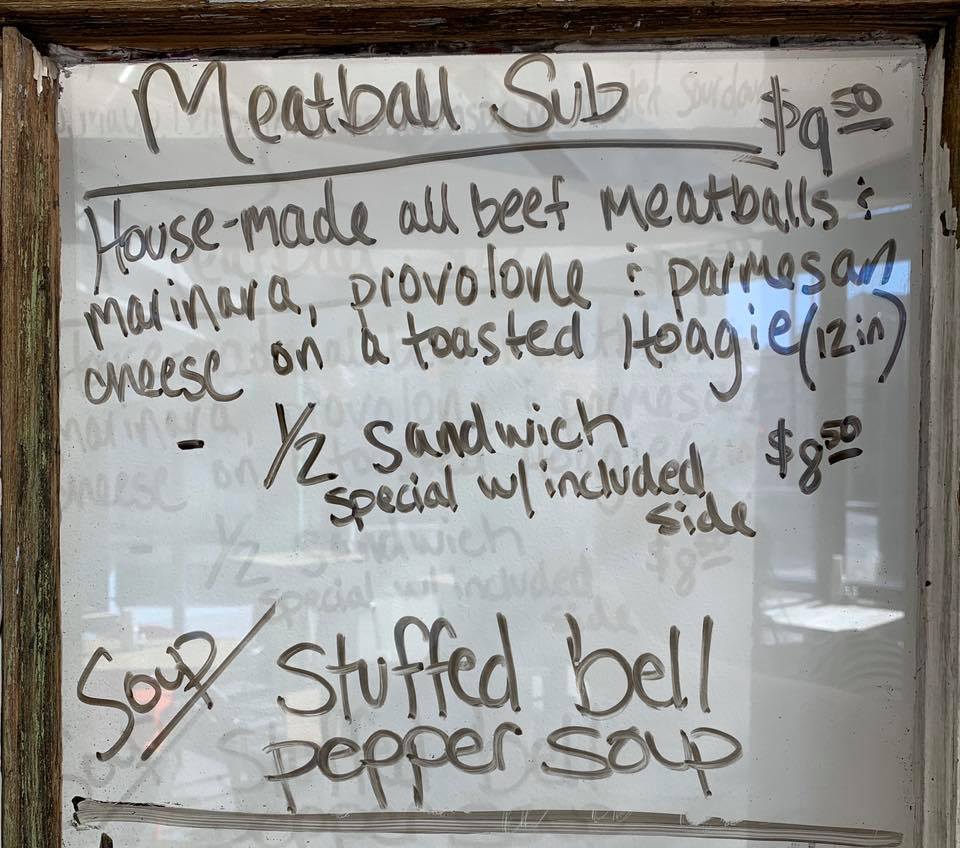 Meatball Sub $9.50
House-made all beef meatballs &
marinara, provolone & parmesan
cheese on a toasted Hoagie (12in)
- 1/2 sandwich $8.50
special w/ included
side
Soup/ Stuffed bell
pepper soup